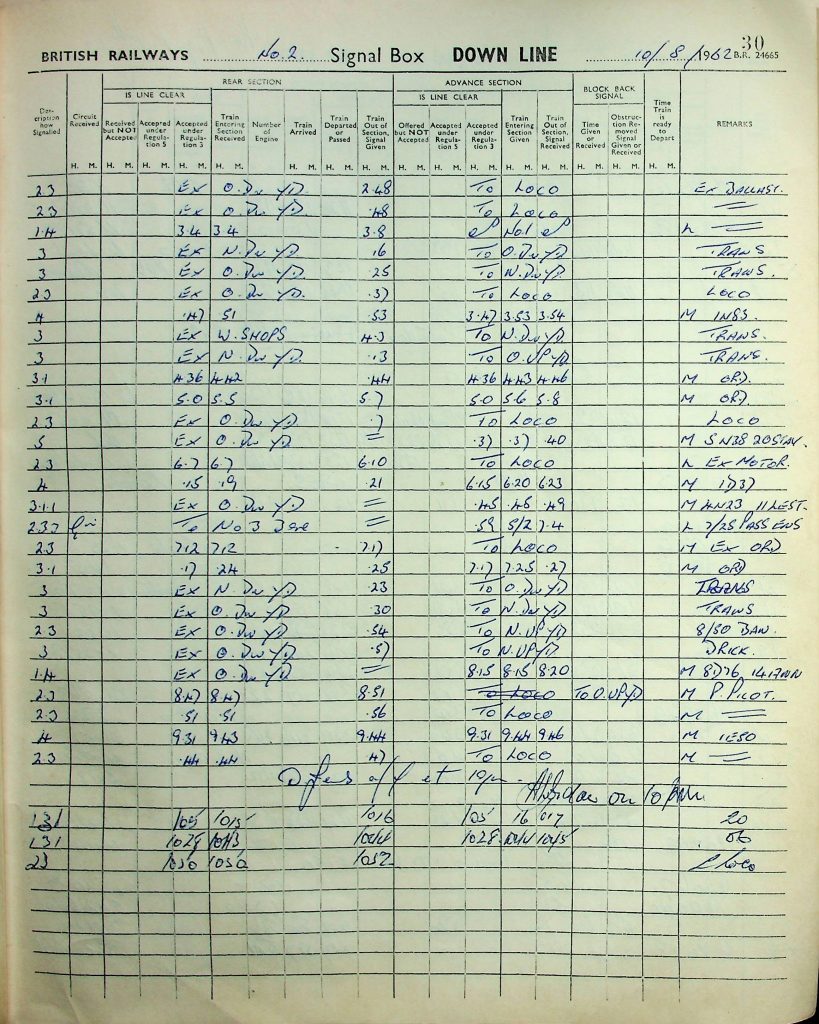 30
BRITISH RAILWAYS No. 2. Signal Box DOWN LINE 10/8/1962 B.R. 24665
REAR SECTION ADVANCE SECTION BLOCK BACK SIGNAL
IS LINE CLEAR IS LINE CLEAR
Description how Signalled Circuit Received Received but NOT Accepted Accepted under Regulation 5 Accepted under Regulation 3 Train Entering Section Received Number of Engine Train Arrived Train Departed or Passed Train Out of Section, Signal Given Offered but NOT Accepted Accepted under Regulation 5 Accepted under Regulation 3 Train Entering Section Given Train Out of Section, Signal Received Time Given or Received Obstruction Removed Signal Given or Received Time Train is ready to Depart REMARKS
H. M. H. M. H. M. H. M. H. M. H. M. H. M. H. M. H. M. H. M. H. M. H. M. H. M. H. M. H. M.
2.3 Ex O. Dn YD. 2.48 To LOCO Ex BALLAST.
2.3 Ex O. Dn YD. .48 To LOCO
1.4 3.4 3.4 3.8 No 1 L
3 Ex N. Dn YD. 16 To O. Dn YD TRANS
3 Ex O. Dn YD. .25 To N. Dn YD. TRANS.
2.3 Ex O. Dn YD. .37 To LOCO LOCO
4 .47 51 .53 3.47 3.53 3.54 M IN83.
3 Ex W. SHOPS 4.3 To N. Dn YD TRANS.
3 Ex N. Dn YD. .13 To O. UP YD TRANS.
3.1 4.36 4.42 .44 4.36 4.43 4.46 M ORD
3.1 5.0 5.5 5.7 5.0 5.6 5.8 M ORD
2.3 Ex O. Dn YD .7 To LOCO LOCO
5 Ex O. Dn YD = .37 .37 .40 M 5N38
2.3 6.7 6.7 6.10 To LOCO L Ex MOTOR.
4 .15 .19 .21 6.15 6.20 6.23 M 1737
3.1.1 Ex O. Dn YD = .45 .45 .49 M 4N23
2.3.3 To No 3 = .59 7.4 L 7/25 PASS ENS
2.3 7.12 7.12 7.17 To LOCO M Ex ORD
3.1 .17 .24 .25 7.17 7.25 .27 M ORD
3 Ex N. Dn YD .23 To O. Dn YD TRANS
3 Ex O. Dn YD .30 To N. Dn YD TRANS
2.3 Ex O. Dn YD .54 To N. UP YD 8/50 BAN.
3 Ex O. Dn YD .57 To N. UP YD BRICK.
1.4 Ex O. Dn YD = 8.15 8.15 8.20 M 8D76
2.3 8.47 8.47 8.51 To LOCO To O. UP YD M P. PILOT.
2.3 .51 .51 .56 To LOCO M
4 9.31 9.43 9.44 9.31 9.44 9.46 M 1E50
2.3 .44 .44 47 To LOCO M
off at 10pm on 10pm
131 105 1015 1016 105 16 017 20
131 1028 1043 1044 1028 1044 1045 06
23 1050 1050 1052 Loco